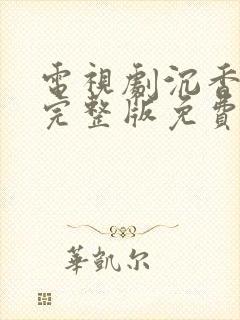 電視劇沉香
完整版免費
華凱尔